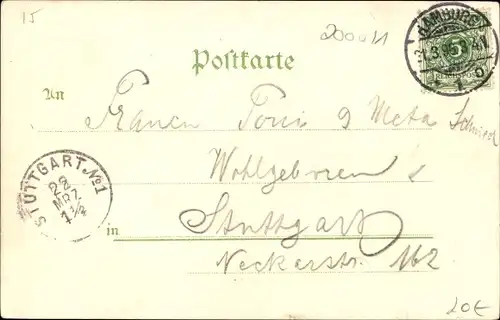 15
200011
HAMBURG
1
Postkarte
An
Frauen Toni & Meta Schmied
Wohlgeboren
STUTTGART No 1
22
MRZ
Stuttgart
in
Neckarstr. 162
20€